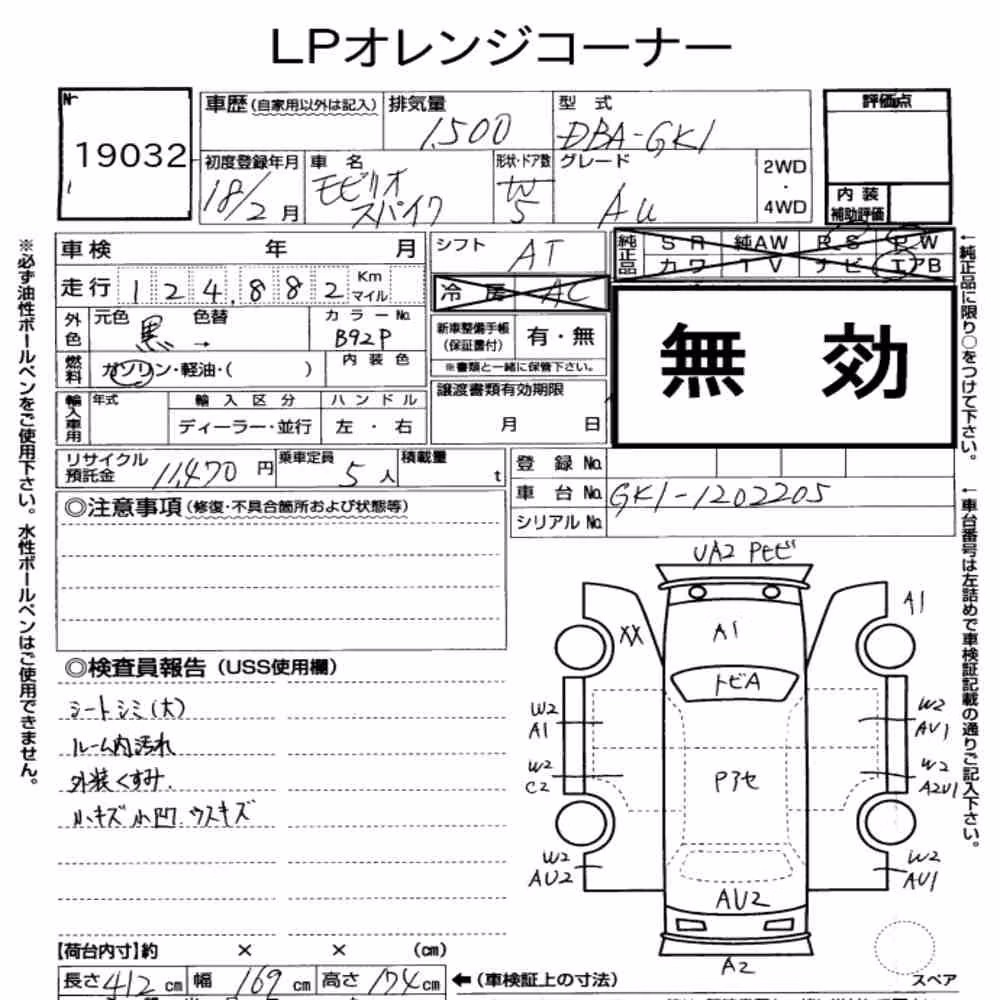 LPオレンジコーナー
No 19032
車歴(自家用以外は記入) 排気量 1,500 型式 DBA-GK1
初度登録年月 18/2月 車名 モビリオスパイク 形状・ドア数 W 5 グレード Au 2WD・4WD
評価点
内装補助評価
車検 年 月 シフト AT
純正品 SR 純AW PS PW
カワ TV ナビ エアB
走行 124,882 Km マイル 冷房 AC
外色 元色 黒 → 色替 カラーNo. B92P
内装色
新車整備手帳(保証書付) 有・無
※書類と一緒に保管下さい。
無効
燃料 ガソリン・軽油・( )
譲渡書類有効期限 月 日
輸入車用 年式 輸入区分 ハンドル
ディーラー・並行 左・右
リサイクル預託金 11,470円 乗車定員 5人 積載量 t
登録No.
車台No. GK1-1202205
シリアルNo.
◎注意事項(修復・不具合箇所および状態等)
◎検査員報告(USS使用欄)
シートシミ(大)
ルーム内汚れ
外装くすみ.
小キズ 小凹 ウスキズ
UA2 Pモビ
A1
XX
A1
トビA
W2 A1
W2 AU1
W2 C2
Pアセ
W2 A2U1
W2 AU2
AU2
W2 AU1
A2
スペア
【荷台内寸】約 × × (cm)
長さ412cm 幅169cm 高さ174cm ←(車検証上の寸法)
※必ず油性ボールペンをご使用下さい。水性ボールペンはご使用できません。
←純正品に限り○をつけて下さい。
←車台番号は左詰めで車検証記載の通りご記入下さい。